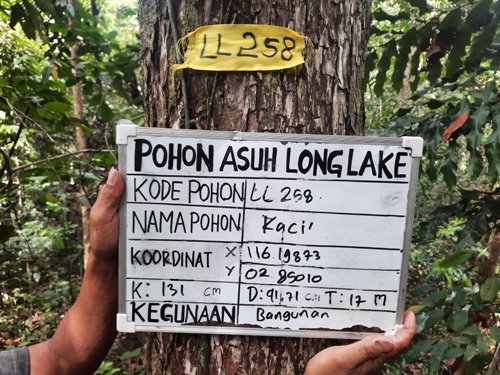 LL 258
POHON ASUH LONG LAKE
KODE POHON LL 258
NAMA POHON Kaci'
KOORDINAT X 116.19873
Y 02.85010
K: 131 cm D: 41,71 cm T: 17 M
KEGUNAAN Bangunan